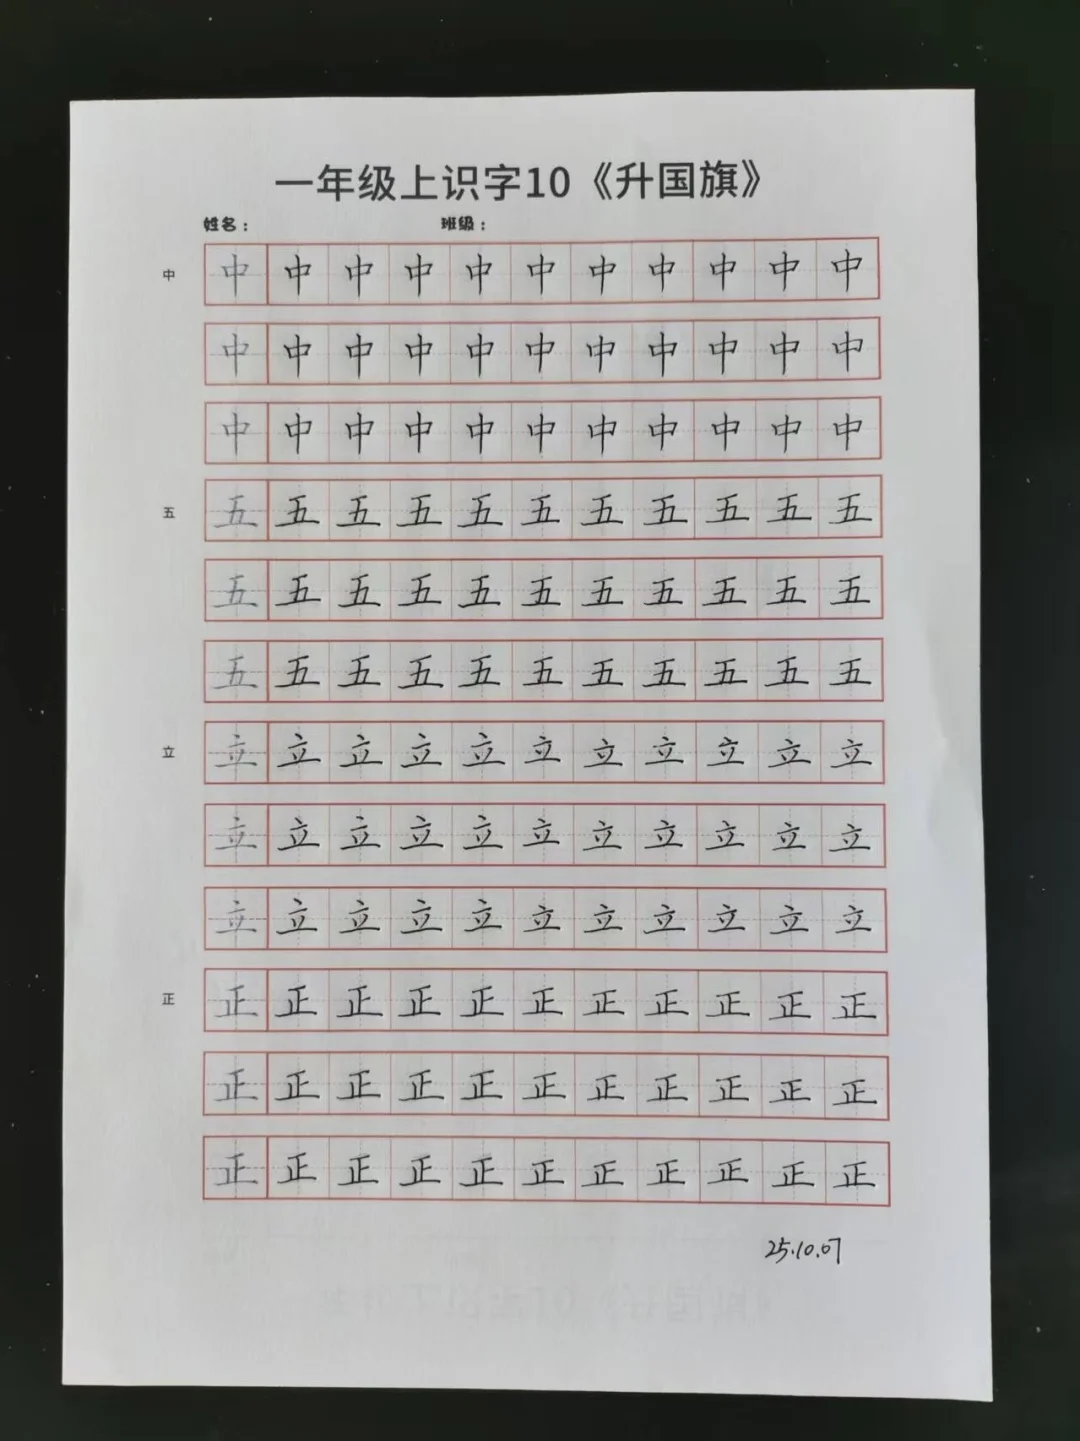 一年级上识字10《升国旗》
姓名： 班级：
中 中 中 中 中 中 中 中 中 中 中 中
中 中 中 中 中 中 中 中 中 中 中
中 中 中 中 中 中 中 中 中 中 中
五 五 五 五 五 五 五 五 五 五 五 五
五 五 五 五 五 五 五 五 五 五 五
五 五 五 五 五 五 五 五 五 五 五
立 立 立 立 立 立 立 立 立 立 立 立
立 立 立 立 立 立 立 立 立 立 立
立 立 立 立 立 立 立 立 立 立 立
正 正 正 正 正 正 正 正 正 正 正 正
正 正 正 正 正 正 正 正 正 正 正
正 正 正 正 正 正 正 正 正 正 正
25.10.07